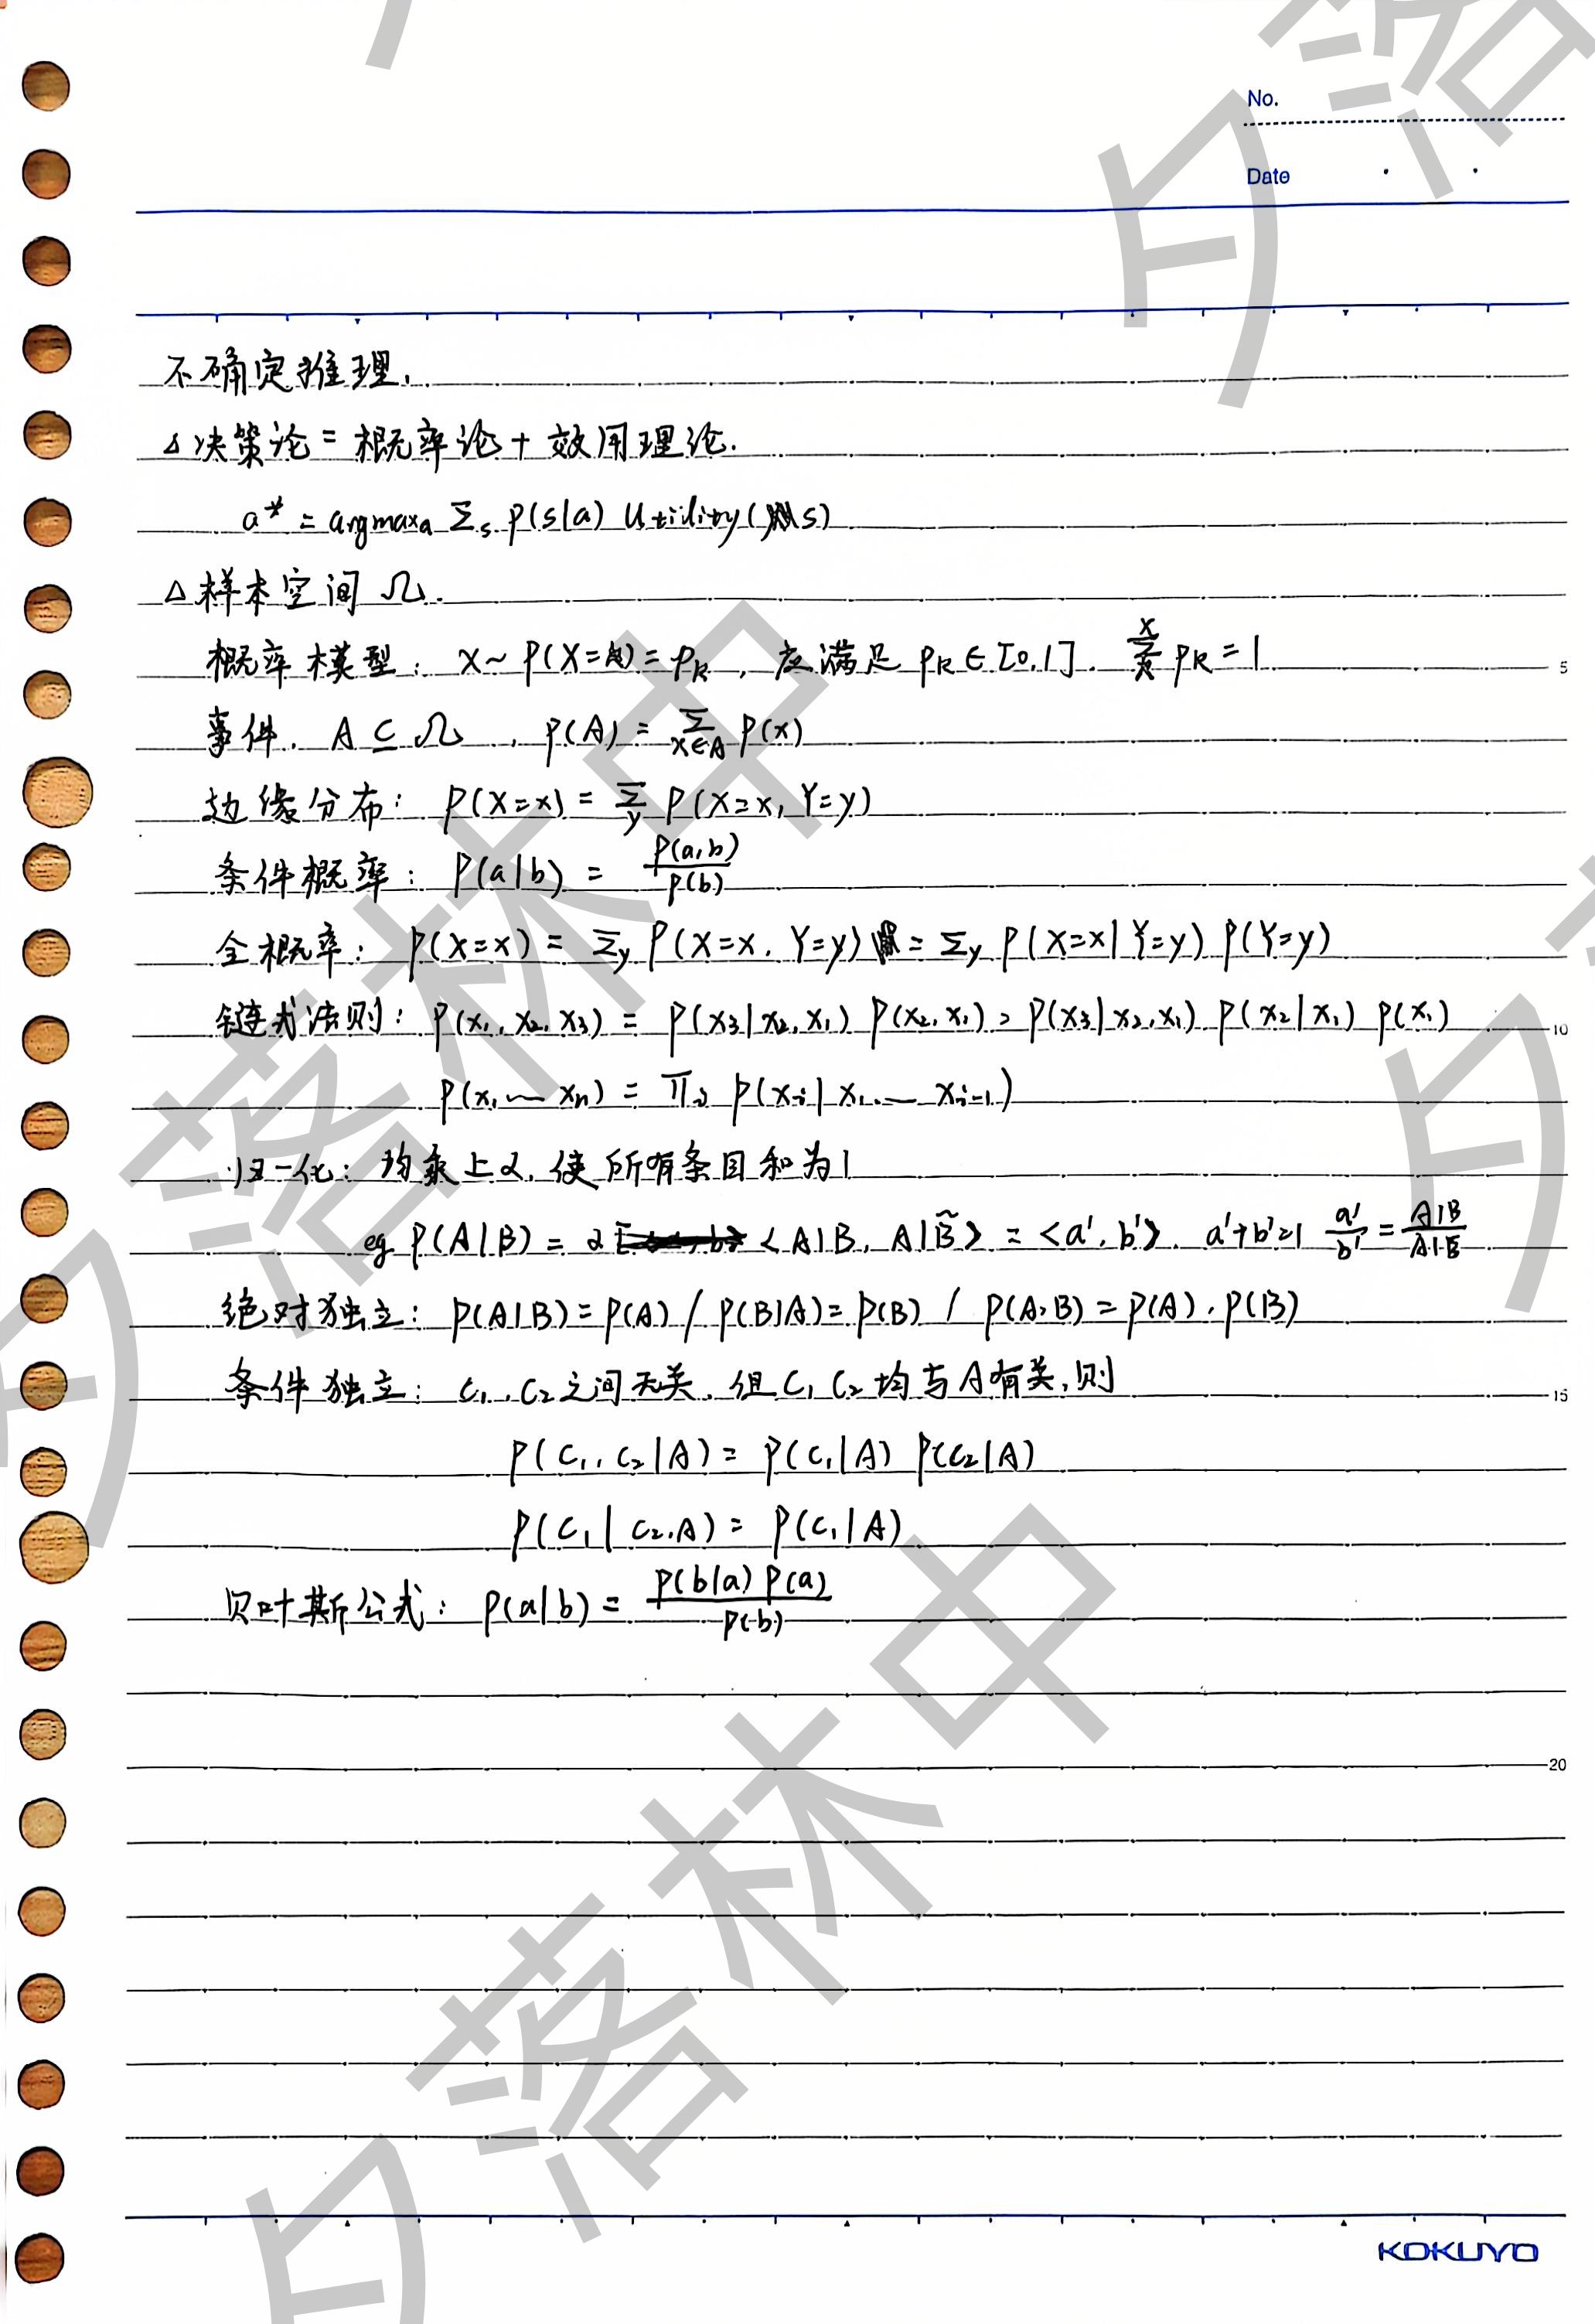 No.
Date
不确定推理.
△决策论 = 概率论 + 效用理论.
a* = argmaxₐ Σₛ P(s|a) Utility(s)
△样本空间 Ω.
概率模型: X~P(X=k)=pₖ, 应满足 pₖ∈[0,1]. pₖ=1
5
事件. A⊆Ω, P(A) = Σ_{x∈A} P(x)
边缘分布: P(X=x) = Σ_y P(X=x, Y=y)
条件概率: P(a|b) = P(a,b)/P(b)
全概率: P(X=x) = Σ_y P(X=x, Y=y) = Σ_y P(X=x|Y=y) P(Y=y)
链式法则: P(x₁, x₂, x₃) = P(x₃|x₂,x₁) P(x₂,x₁) = P(x₃|x₂,x₁) P(x₂|x₁) P(x₁)
10
P(x₁…xₙ) = Πᵢ P(xᵢ|x₁…xᵢ₋₁)
归一化: 均乘上α, 使所有条目和为1
eg P(A|B) = α <A|B, A|B̃> = <a', b'>. a'+b'=1 a'/b' = A|B/A|B̃
绝对独立: P(A|B)=P(A) / P(B|A)=P(B) / P(A,B)=P(A)·P(B)
条件独立: C₁, C₂之间无关, 但C₁ C₂均与A有关, 则
15
P(C₁, C₂|A) = P(C₁|A) P(C₂|A)
P(C₁|C₂,A) = P(C₁|A)
贝叶斯公式: P(a|b) = P(b|a)P(a)/P(b)
20
KOKUYO
夕落林中
夕落林中
夕落
夕